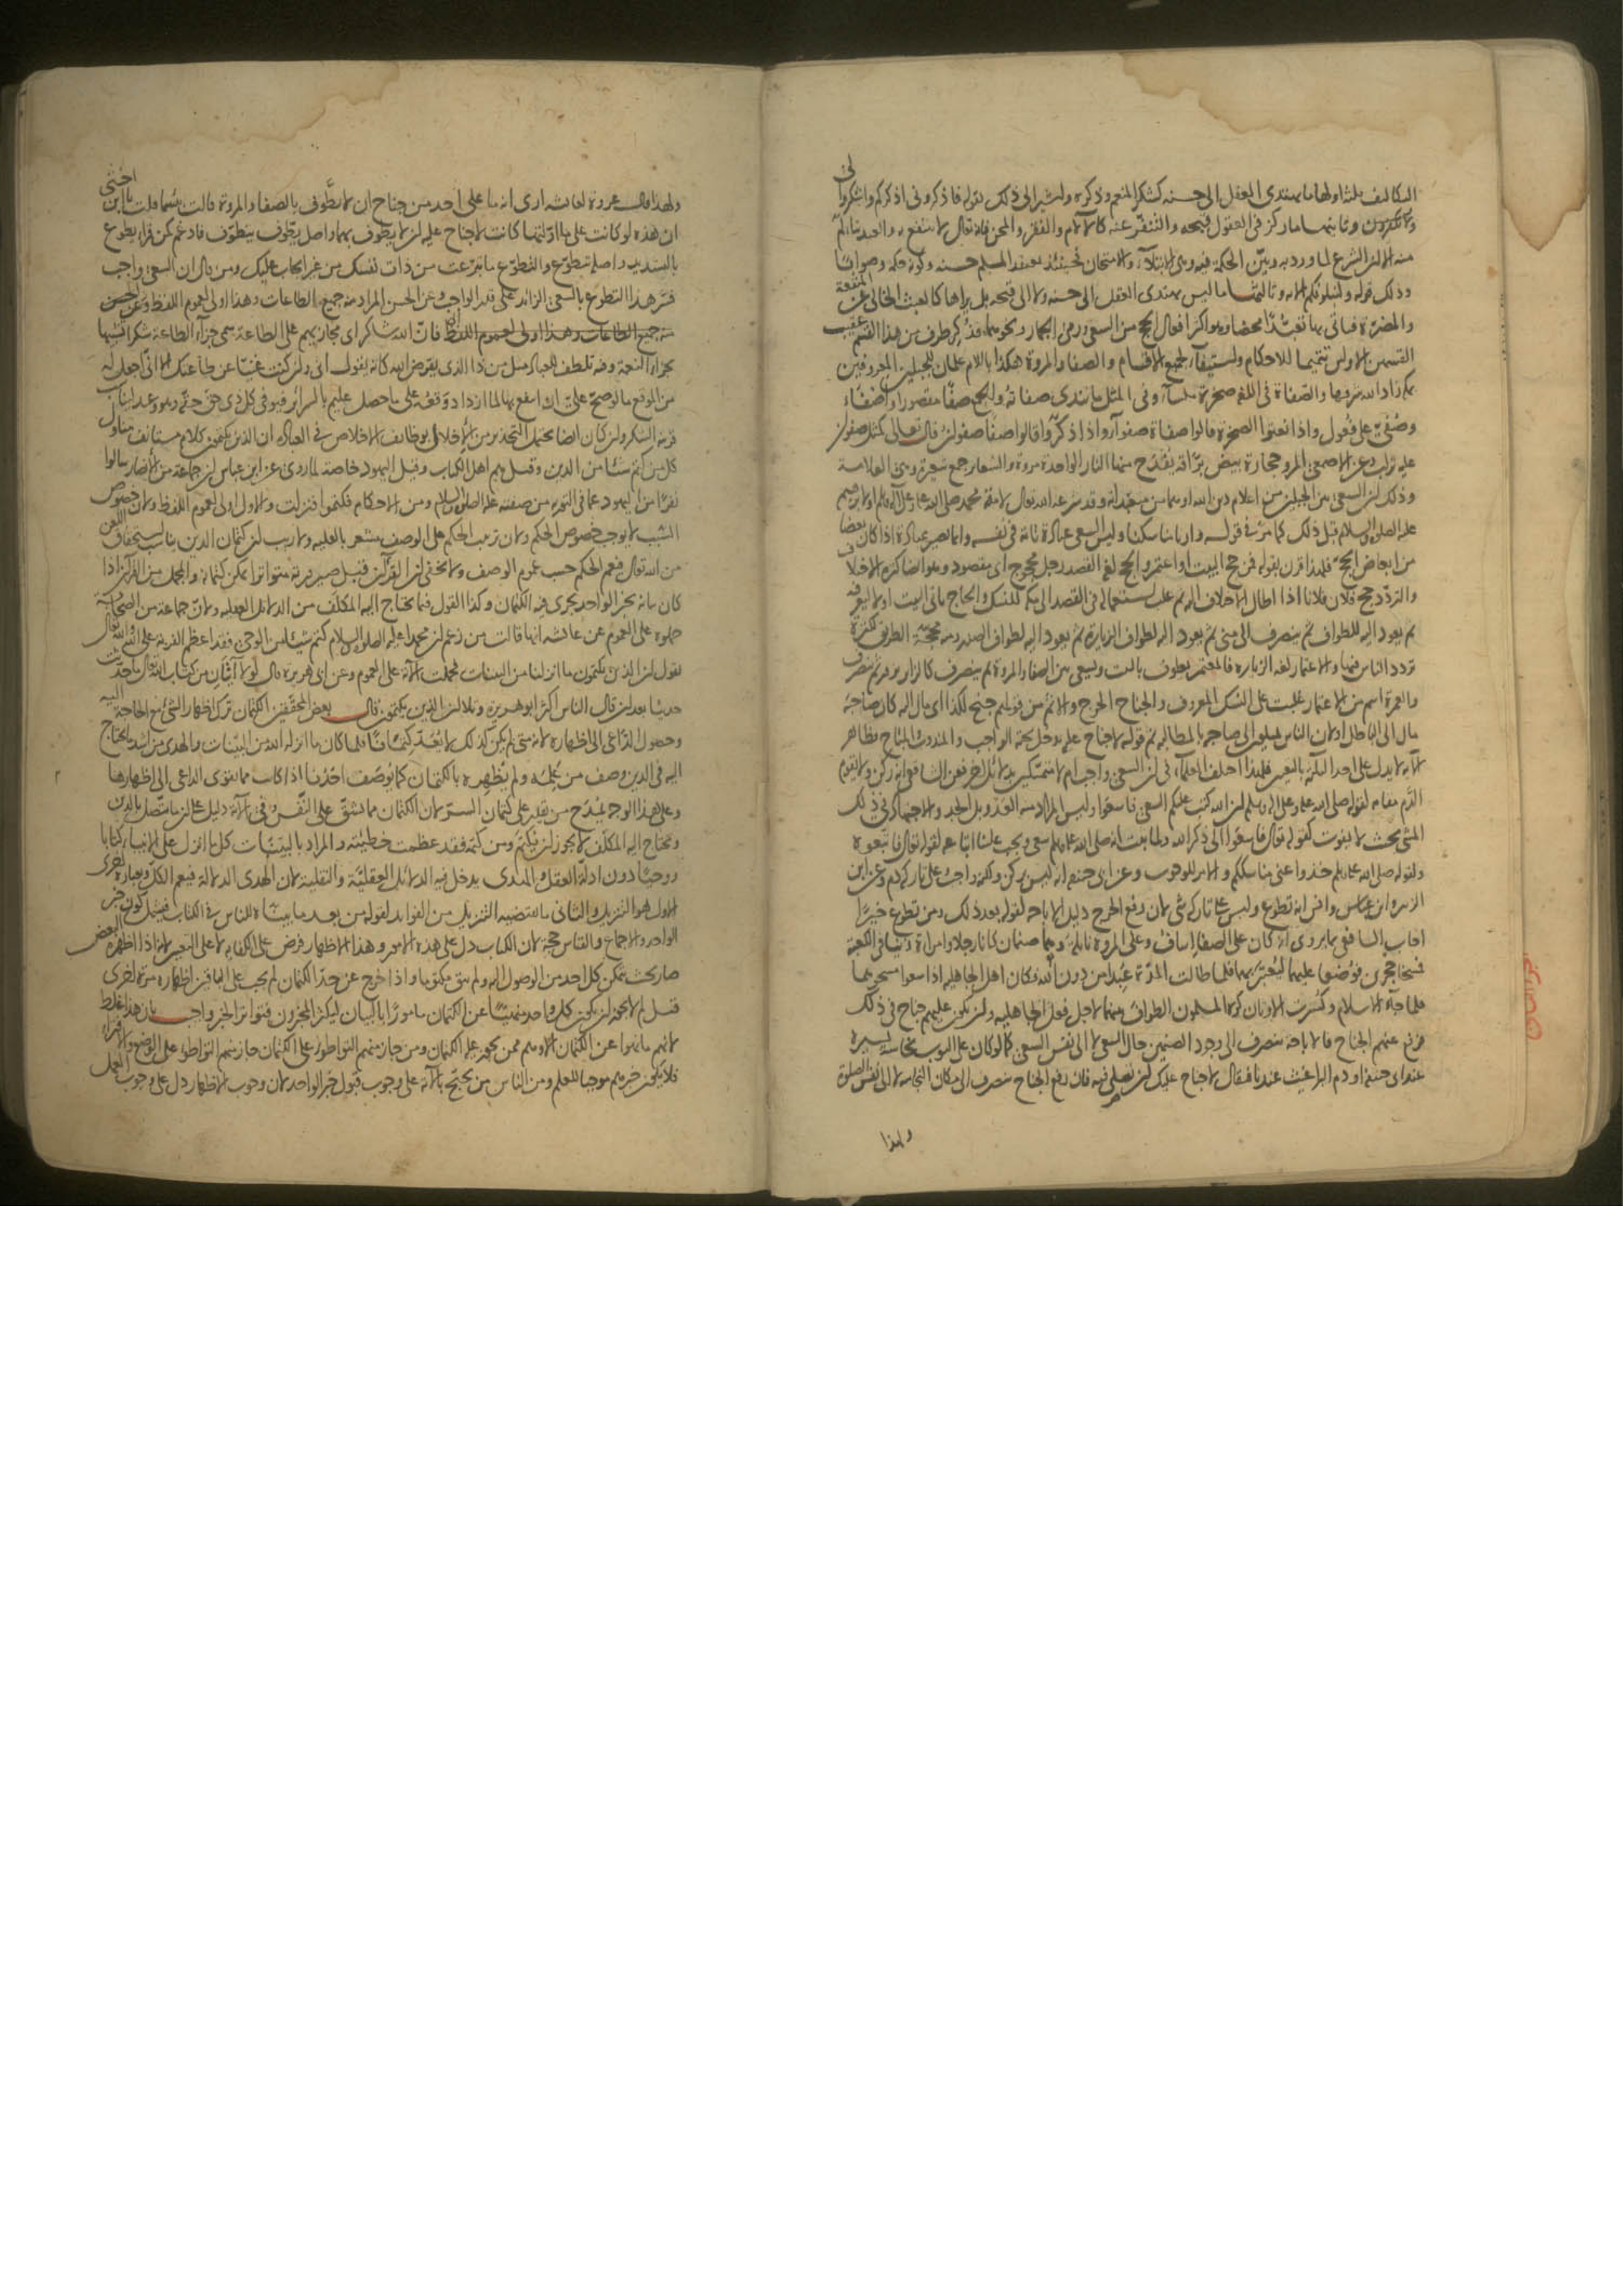 التكاليف ثلثة اولها ما يهتدى العقل الى حسنه كشكر المنعم وذكره واشير الى ذلك بقوله فاذكرونى اذكركم واشكروا لى
ولا تكفرون وثانيها ما ركز فى العقول قبحه والتنفر عنه كالآلام والفقر والمحن فانه تعالى لا ينتفع به والعبد يتألم
منه الا ان الشرع لما ورد به وبين الحكمة فيه وهى الابتلاء والامتحان فحينئذ يعتقد المسلم حسنه وكونه حكمة وصوابا
وذلك قوله ولنبلونكم الآية وثالثها ما ليس يهتدى العقل الى حسنه ولا الى قبحه بل يراها كالعبث الخالى عن المنفعة
والمضرة فياتى بها تعبدا محضا وهو اكثر افعال الحج من السعى ورمى الجمار ونحوهما فذكر طرف من هذا القسم عقيب
القسمين الاولين تتميما للاحكام واستيفاء لجميع الاقسام والصفا والمروة هكذا باللام علمان للجبلين المعروفين
بمكة زاد الله شرفها والصفاة فى اللغة صخرة ملساء وفى المثل ما تندى صفاته والجمع صفا مقصورا واصفاء
وصفى على فعول واذا نعتوا الصخرة قالوا صفاة صفواء واذا ذكروا قالوا صفا صفوان قال تعالى كمثل صفوان
عليه تراب وعن الاصمعى المرو حجارة بيض براقة يقتدح منها النار الواحدة مروة والشعائر جمع شعيرة وهى العلامة
وذلك ان السعى بين الجبلين من اعلام دين الله
عليه الصلوة والسلام قبل ذلك كما مر فى قوله وارنا مناسكنا وليس السعى عبادة تامة فى نفسه وانما يصير عبادة اذا كان بعضا
من ابعاض الحج فلهذا قرن بقوله فمن حج البيت او اعتمر والحج لغة القصد رجل محجوج اى مقصود وهو ايضا كثرة الاختلاف
والتردد حج فلان فلانا اذا اطال الاختلاف اليه ثم غلب استعماله فى القصد الى مكة للنسك والحاج ياتى البيت اولا ليعرفه
ثم يعود اليه للطواف ثم ينصرف الى منى ثم يعود اليه لطواف الزيارة ثم يعود اليه لطواف الصدر ومنه محجة الطريق لكثرة
تردد الناس فيها والاعتمار لغة الزيارة فالمعتمر يطوف بالبيت ويسعى بين الصفا والمروة ثم ينصرف كالزائر يزور ثم ينصرف
والعمرة اسم من الاعتمار غلبت على النسك المعروف والجناح الحرج والاثم من قولهم جنح لكذا اى مال اليه كان صاحبه
مال الى الباطل او لان الناس يميلون الى صاحبه بالمطالبة ثم قوله لا جناح عليه يدخل تحته الواجب والمندوب والمباح فظاهر
الآية لا يدل على احد الثلثة بالتعيين فلهذا اختلف العلماء فى ان السعى واجب ام لا متمسكين بدلائل اخر فعن الشافعى انه ركن ولا يقوم
الدم مقامه لقوله صلى الله عليه وعلى آله وسلم ان الله كتب عليكم السعى فاسعوا وليس المراد منه العدو بل الجد والاجتهاد كفى ذلك
المشى بحيث لا يفوت كقوله تعالى فاسعوا الى ذكر الله ولما ثبت انه صلى الله عليه وسلم سعى ويجب علينا اتباعه لقوله تعالى فاتبعوه
ولقوله صلى الله عليه وسلم خذوا عنى مناسككم والامر للوجوب وعن ابى حنيفة انه ليس بركن ولكنه واجب وعلى تاركه دم وعن ابن
الزبير وابن عباس وانس انه تطوع وليس على تاركه شئ لان رفع الحرج دليل الاباحة لقوله بعد ذلك ومن تطوع خيرا
اجاب الشافعى بما يروى انه كان على الصفا اساف وعلى المروة نائلة وهما صنمان كانا رجلا وامراة زنيا فى الكعبة
فمسخا حجرين فوضعا عليهما ليعتبر بهما فلما طالت المدة عبدا من دون الله وكان اهل الجاهلية اذا سعوا مسحوهما
فلما جاء الاسلام وكسرت الاوثان كره المسلمون الطواف بينهما لاجل فعل الجاهلية وان يكون عليهم جناح فى ذلك
فرفع عنهم الجناح فالاباحة منصرف الى وجود الصنمين حال السعى لا الى نفس السعى كما لو كان على الثوب نجاسة يسيرة
عند ابى حنيفة او دم البراغيث عندنا فيقال لا جناح عليك ان تصلى فيه فان رفع الجناح منصرف الى مكان النجاسة لا الى نفس الصلوة
ولهذا
ولهذا قال عروة لعائشة ارى انه ما على احد من جناح ان لا يطوف بالصفا والمروة قالت بئسما قلت يا ابن اختى
ان هذه لو كانت على ما اولتها كانت لا جناح عليه ان لا يطوف بهما واصل يطوف يتطوف فادغم كمن قرا يطوع
بالتشديد واصله يتطوع والتطوع ما تبرعت من ذات نفسك من غير ايجاب عليك ومن قال ان السعى واجب
فسر هذا التطوع بالسعى الزائد على قدر الواجب وعن الحسن المراد منه جميع الطاعات وهذا اولى لعموم اللفظ
منه جميع الطاعات وهذا اولى لعموم اللفظ فان الله شاكر اى مجازيهم على الطاعة سمى جزاء الطاعة شكرا تشبيها
بجزاء النعمة وفيه تلطف للعباد مثل من ذا الذى يقرض الله كانه يقول انى وان كنت غنيا عن طاعتك الا انى اجعل له
من الموقع ما لو صح على ان انتفع بها لما ازداد وقعه على ما حصل عليم بالسرائر فيوفى كل ذى حق حقه وهو وعد
قرينة الشكر وان كان ايضا يحتمل التحذير من الاخلال بوظائف الاخلاص فى العبادة ان الذين يكتمون كلام مستأنف يتناول
كل من كتم شيئا من الدين وقيل هم اهل الكتاب وقيل اليهود خاصة لما روى عن ابن عباس ان جماعة من الانصار سالوا
نفرا من اليهود عما فى التورية من صفته عليه الصلوة والسلام ومن الاحكام فكتموا فنزلت والاول اولى لعموم اللفظ ولان خصوص
السبب لا يوجب خصوص الحكم ولان ترتب الحكم على الوصف مشعر بالعلية ولا ريب ان كتمان الدين يناسب استحقاق اللعن
من الله تعالى فيعم الحكم حسب عموم الوصف ولا يخفى ان القرآن قبل صيرورته متواترا يمكن كتمانه والمجمل من القرآن اذا
كان بيانه بخبر الواحد يجرى فيه الكتمان وكذا القول فيما يحتاج اليه المكلف من الدلائل العقلية ولان جماعة من الصحابة
حملوه على العموم عن عائشة انها قالت من زعم ان محمدا عليه الصلوة والسلام كتم شيئا من الوحى فقد اعظم الفرية على الله والله تعالى
يقول ان الذين يكتمون ما انزلنا من البينات فحملت الآية على العموم وعن ابى هريرة قال لولا آيتان من كتاب الله تعالى ما حدثت
حديثا بعد ان قال الناس اكثر ابو هريرة وتلا ان الذين يكتمون قال بعض المحققين الكتمان ترك اظهار الشئ مع الحاجة اليه
وحصول الداعى الى اظهاره لانه متى لم يكن كذلك لا يعد كتمانا فلما كان ما انزله الله من البينات والهدى من اشد ما يحتاج
اليه فى الدين وصف من علمه ولم يظهره بالكتمان كما يوصف احدنا اذا كان مما يقوى الداعى الى اظهارها
وعلى هذا الوجه يمدح من يقدر على كتمان السر لان الكتمان مما يشق على النفس وفى الآية دليل على ان ما يتصل بالدين
ويحتاج اليه المكلف لا يجوز ان يكتم ومن كتمه فقد عظمت خطيئته والمراد بالبينات كل ما انزل على الانبياء كتابا
ووحيا دون ادلة العقل والهدى يدخل فيه الدلائل العقلية والنقلية لان الهدى الدلالة فيعم الكل وبعبارة اخرى
الاول هو التنزيل والثانى ما يقتضيه التنزيل من الفوائد لقوله من بعد ما بيناه للناس فى الكتاب فيشمل كون خبر
الواحد والاجماع والقياس حجة لان الكتاب دل على هذه الامور وهذا الاظهار فرض على الكفاية لا على التعيين لانه اذا اظهره البعض
صار بحيث يتمكن كل احد من الوصول اليه ولم يبق مكتوما واذا خرج عن حد الكتمان لم يجب على الباقين اظهاره مرة اخرى
قيل لم لا يجوز ان يكون كل واحد منهيا عن الكتمان مامورا بالبيان ليكثر المخبرون فيتواتر الخبر واجيب بان هذا غلط
لانهم ما نهوا عن الكتمان الا وهم ممن يجوز عليه الكتمان ومن جاز منهم التواطؤ على الكتمان جاز منهم التواطؤ على الوضع والافتراء
فلا يكون خبرهم موجبا للعلم ومن الناس من يحتج بالآية على وجوب قبول خبر الواحد لان وجوب الاظهار دل على وجوب العمل